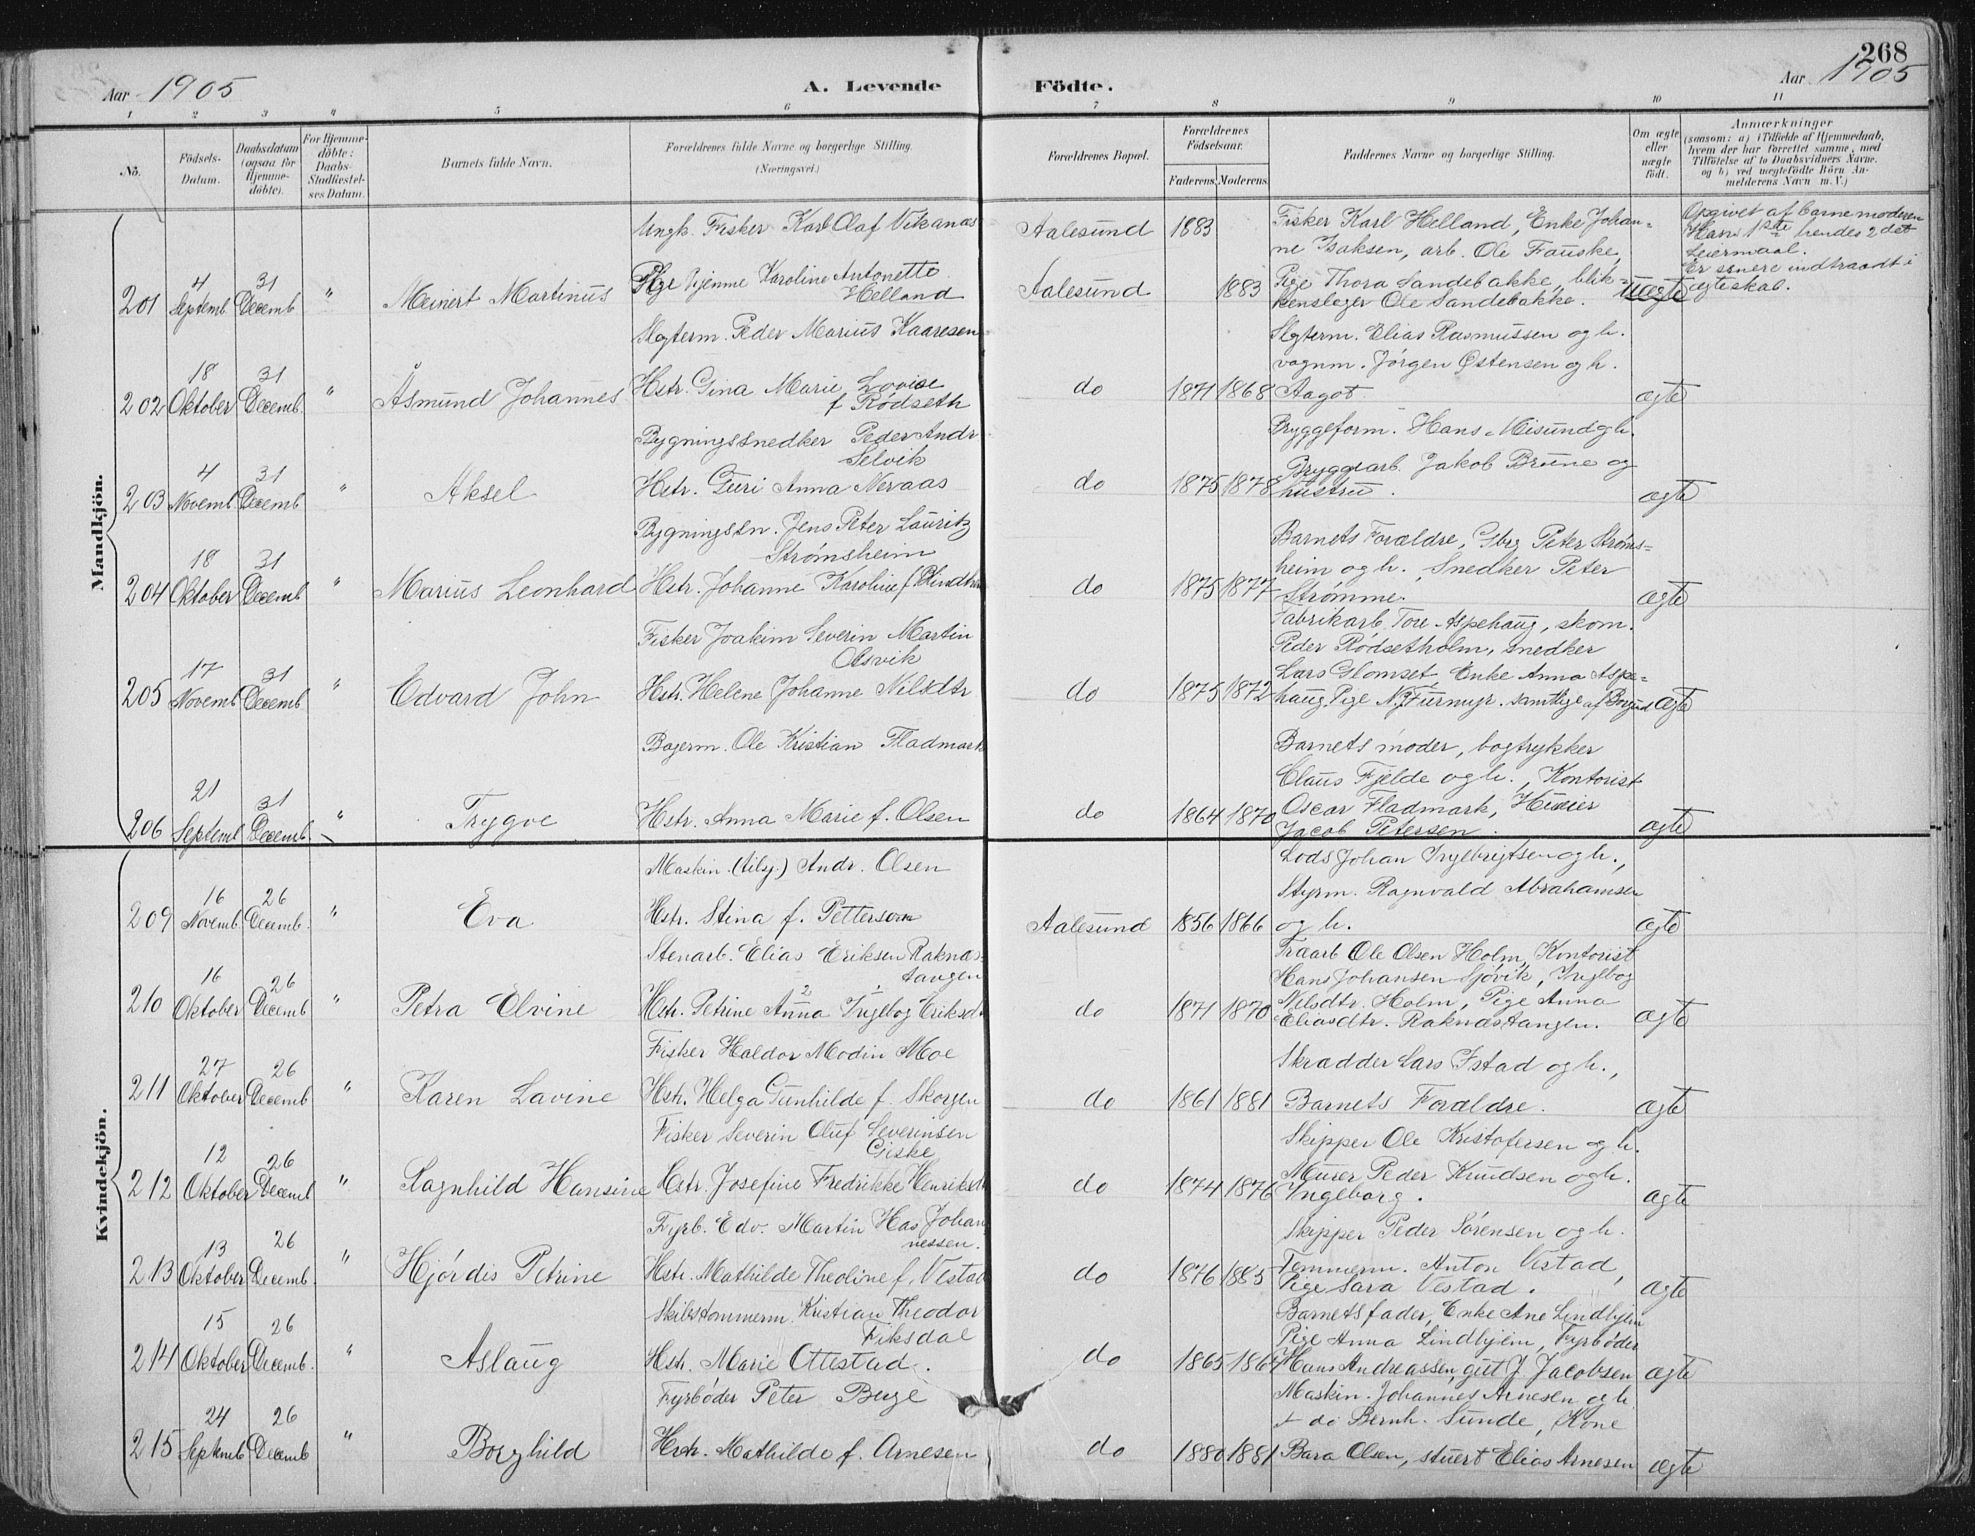 268
Aar 1905 A. Levende Födte. Aar 1905
1 2 3 4 5 6 7 8 9 10 11
No. Födsels-Datum. Daabsdatum (ogsaa for Hjemme-döbte). For Hjemme-döbte: Daabs-Stadfæstel-ses Datum. Barnets fulde Navn. Forældrenes fulde Navne og borgerlige Stilling. (Næringsvei.) Forældrenes Bopæl. Forældrenes Födselsaar. Faderens. Moderens. Faddernes Navne og borgerlige Stilling. Om ægte eller uægte födt. Anmærkninger (saasom: a) i Tilfælde af Hjemmedaab, hvem der har forrettet samme, med Tilföielse af to Daabsvidners Navne, og b) ved uægtefödte Börn An-melderens Navn m. V.)
Mandkjön.
Ungk. Fisker Karl Olaf Vikanas Aalesund 1883 Fisker Karl Helland, Enke Johan- Opgivet af barnemoderen
ne Isaksen, arb. Ole Fauske, Hans 1ste hendes 2det
4 31 Pige Gjenme Karoline Antonette Leiermaal.
201 Septemb Decemb " Meinert Martinus Helland Aalesund 1883 Pige Thora Sandebakke, blik- uægte Er senere indtraadt i
kenslager Ole Sandebakke. ægteskab.
Slgterm. Peder Marius Kaaresen Slgterm. Elias Rasmussen og h.
18 31 vognm. Jørgen Østensen og h.
202 Oktober Decemb. " Åsmund Johannes Hstr. Gina Marie Lovise do 1871 1868 Aagot. ægte
f Rödseth
Bygningssnedker Peder Andr Bryggeform. Hans Misund og h.
4 31 Selvik Bryggearb. Jakob Brune og
203 Novemb Decemb " Aksel Hstr. Guri Anna Neraas do 1875 1878 hustru. ægte
Bygningssn. Jens Peter Lauritz Barnets Forældre, Gbrg Peter Strøms-
18 31 Strømsheim heim og h. Snedker Peter
204 Oktober Decemb " Marius Leonhard Hstr. Johanne Karoline f. do 1875 1877 Strømme. ægte
Fabrikarb. Tore Aspehaug, skom.
Fisker Joakim Severin Martin Peder Rødsetholm, snedker
17 31 Olsvik Lars Glomset, Enke Anna Aspe-
205 Novemb Decemb " Edvard John Hstr. Helene Johanne Nilsdtr do 1875 1872 haug, Pige N. Furmyr. samtlige af Borgund ægte
Bagerm. Ole Kristian Fladmark Barnets moder, bogtrykker
21 31 Claus Fjelde og h., Kontorist
206 Septemb Decemb. " Trygve Hstr. Anna Marie f. Olsen do 1864 1870 Oscar Fladmark, ægte
Jacob Petersen.
Kvindekjön.
Maskin. (tilsj.) Andr. Olsen Lods Johan Ingebrigtsen og h.,
16 26 Styrm. Ragnvald Abrahamsen
209 Novemb. Decemb. " Eva Hstr. Stina f. Petterson Aalesund 1856 1866 og h. ægte
Stenarb. Elias Eriksen Raknes- Fraarb Ole Olsen Holm, Kontorist
16 26 tangen Hans Johansen Sjøvik, Ingebog
210 Oktober Decemb " Petra Elvine Hstr. Petrine Anna Ingebog Eriksdt do 1871 1870 Nilsdtr. Holm, Pige Anna ægte
Eliasdtr. Raknestangen.
Fisker Haldor Modin Moe Skrædder Lars Istad og h.,
27 26
211 Oktober Decemb. " Karen Lavine Hstr. Helga Gunhilde f. Skorgen do 1861 1881 Barnets Forældre. ægte
Fisker Severin Oluf Severinsen Skipper Ole Kristofersen og h.
12 26 Giske
212 Oktober Decemb " Ragnhild Hansine Hstr. Josefine Fredrikke Henriksdt do 1874 1876 Murer Peder Knudsen og h. ægte
Ingeborg.
Fyrb. Edv. Martin Has Johan- Skipper Peder Sørensen og h.
13 26 nessen.
213 Oktober Decemb. " Hjørdis Petrine Hstr. Mathilde Theoline f. Vestad do 1876 1883 Tømmerm. Anton Vestad, ægte
Pige Sara Vestad.
Skibstømmerm. Kristian Theodor Barnets fader, Enke Ane Lindhjem
15 26 Fiksdal Pige Anna Lindhjem, Fyrbøder
214 Oktober Decemb. " Aslaug Hstr. Marie Ottestad. do 1865 Hans Andreassen, gut J. Jacobsen ægte
Fyrbøder Peter Buge Maskin. Johannes Arnesen og h
24 26 + do Bernh. Sunde, Kone
215 Septemb Decemb " Borghild Hstr. Mathilde f. Arnesen do 1880 1881 Bara Olsen, stuert Elias Arnesen ægte